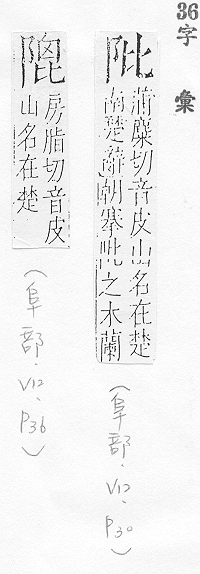 36字彙
阰
蒲麋切音皮山名在楚
南楚辭朝搴阰之木蘭
(阜部.V12.P30)
房脂切音皮
山名在楚
(阜部.V12.P36)